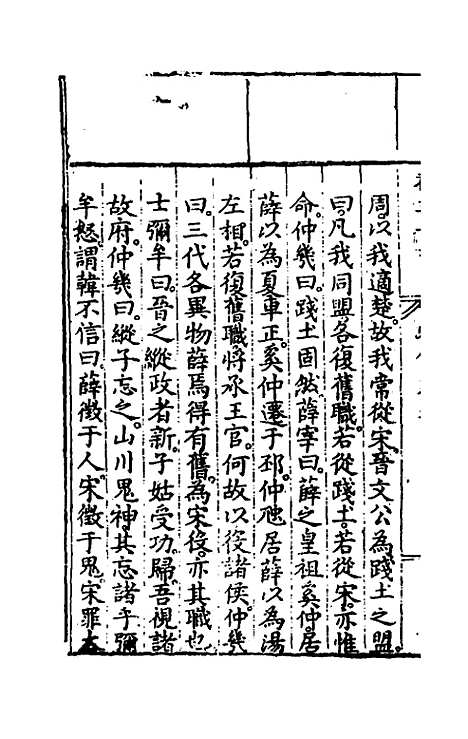 周。以我適楚。故我常從宋。晉文公為踐土之盟。
曰。凡我同盟。各復舊職。若從踐土。若從宋。亦惟
命。仲幾曰。踐土固然。薛宰曰。薛之皇祖奚仲。居
薛以為夏車正。奚仲遷于邳。仲虺居薛。以為湯
左相。若復舊職。將承王官。何故以役諸侯。仲幾
曰。三代各異物。薛焉得有舊。為宋役。亦其職也。
士彌牟曰。晉之縱政者新。子姑受功。歸。吾視諸
故府。仲幾曰。縱子忘之。山川鬼神。其忘諸乎。彌
牟怒。謂韓不信曰。薛徵于人。宋徵于鬼。宋罪大